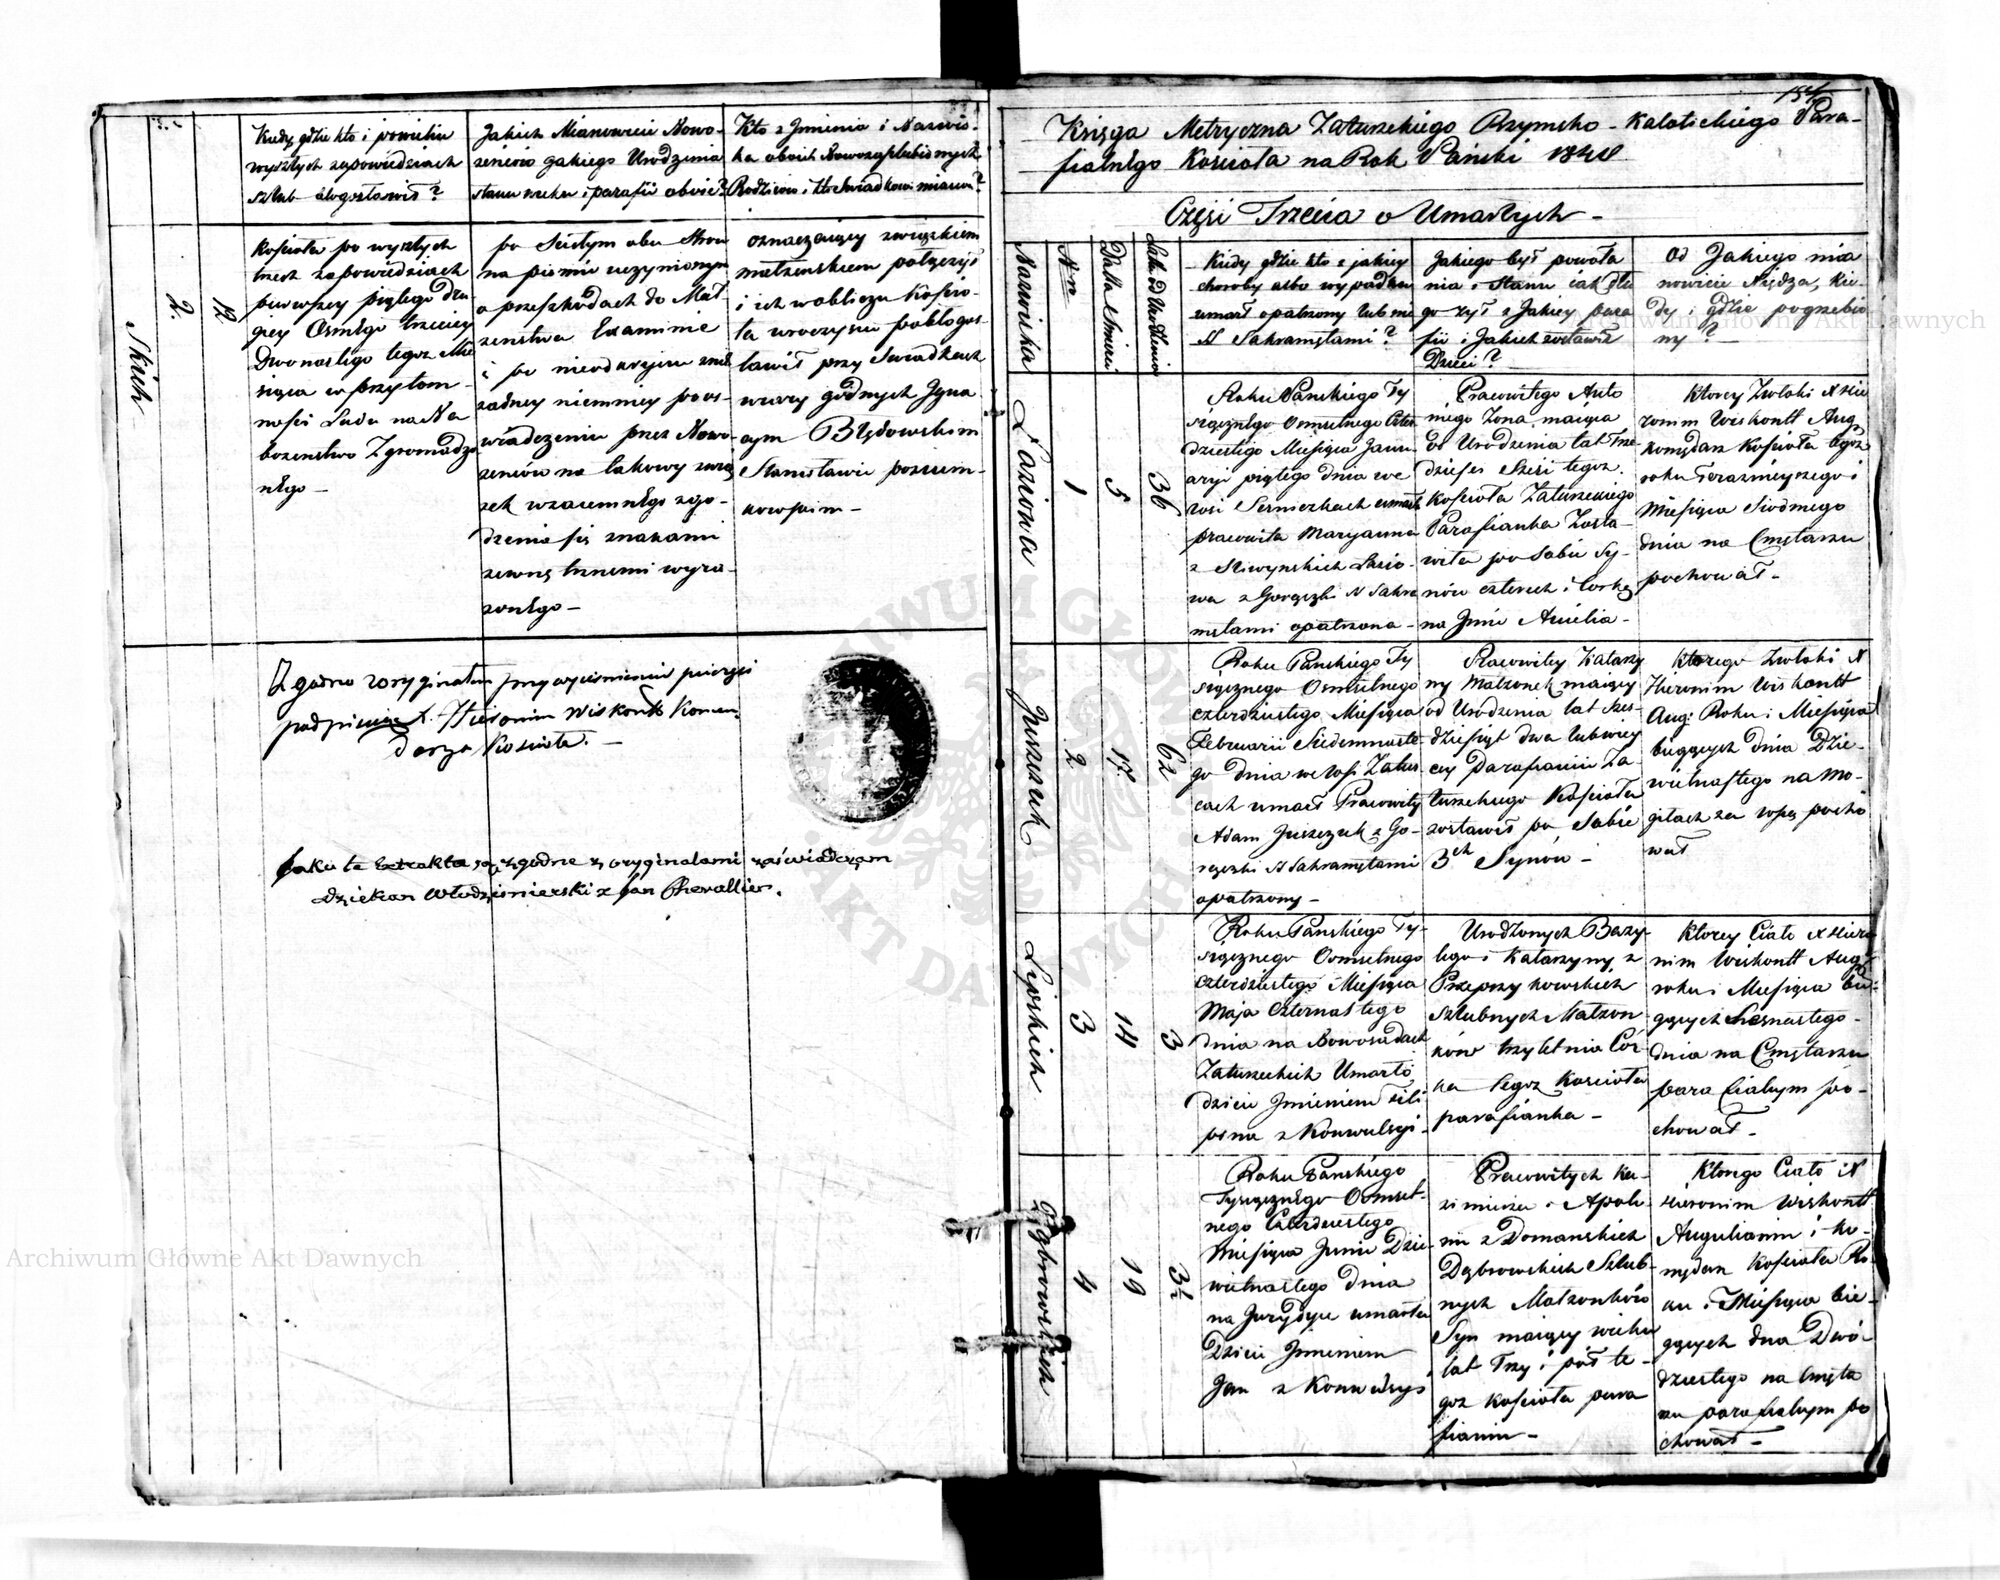 Kiedy gdzie kto i po wielu
wyszłych zapowiedziach
szlub błogosławił?
Jakich Mianowicie Nowo-
żeńców jakiego Urodzenia
stanu wieku i parafii oboie?
Kto z Jmienia i Nazwis-
ka oboich Nowozaślubionych
Rodziców i kto Swiadkowie miano?
Skich
2.
12
Kościoła po wyszłych
trzech zapowiedziach
pierwszey piątego dru
giey Osmego trzeciey
Dwonastego tegoż Mie
siąca w przytom-
ności Ludu na Na
bożenstwo Zgromadzo
nego -
po Scisłym obu Stron
na piśmie uczynionym
o przeszkodach do Mał-
żenstwa Examinie
i po nieodkryciu
żadney niemniey po os-
wiadczeniu przez Nowo-
żeńców na takowy zwią
zek wzaiemnego zgo-
dzenia się znakami
zewnętrznemi wyra-
żonego -
oznaczaiący związkiem
małżenskiem połączył
i ich w obliczu Kościo-
ła uroczyście pobłogos-
ławił przy Swiadkach
wiary godnych Igna
cym Błędowskim
Stanisławie
Zgodno z oryginałem przy wyciśnieniu pieczęci
podpisuię X. Hieronim Wiskontt Komen-
darz Kościoła. -
Jako te Extrakta są zgodne z oryginałami zaświadczam
Dziekan Włodzimierski x Jan Chevallier.
154
Księga Metryczna Zaturzeckiego Rzymsko-Katolickiego Para-
fialnego Kościoła na Rok Pański 1840
Część Trzecia o Umarłych -
Nazwiska
Nm
Datta Śmierci
Lata od Urodzenia
Kiedy gdzie kto z jakiey
choroby albo wypadku
umarł opatrzony lub nie
SS Sakramętami?
Jakiego był powoła
nia i Stanu iak dłu
go żył z Jakiey para
fii i Jakich zostawił
Dzieci?
Od Jakiego mia
nowicie Xiędza, kie-
dy i gdzie pogrzebio
ny? -
Łaziowa
1
5
36
Roku Pańskiego Ty
siącznego Osmsetnego Czter
dziestego Miesiąca Janu
aryi piątego dnia we
wsi Serniczkach umarła
pracowita Maryanna
z Sliwynskich Łazio-
wa z Gorączki SS Sakra
mętami opatrzona -
Pracowitego Anto
niego Zona maiąca
od Urodzenia lat Trze
dzieści Sześć tegoż
Kościoła Zaturzeckiego
Parafianka Zosta-
wiła po Sobie Sy-
nów czterech i Corkę
na Jmie Anielia -
Ktorey Zwłoki X Hie
ronim Wiskontt Aug.
komędarz Kościoła tegoż
roku Terazniejszego i
Miesiąca Siodmego
dnia na Cmętarzu
pochował -
Juszczuk
2
17.
62
Roku Pańskiego Ty
siącznego Osmsetnego
czterdziestego Miesiąca
Februarii Siedemnaste-
go dnia we wsi Zatur-
cach umarł Pracowity
Adam Juszczuk z Go-
rączki SS Sakramętami
opatrzony -
Pracowitey Katarzy
ny Małzonek maiący
od Urodzenia lat Szes-
dziesiąt dwa lub wię
cey Parafianin Za-
turzeckiego Kościoła
zostawił po Sobie
3ch Synów -
Ktorego Zwłoki X
Hieronim Wiskontt
Aug: Roku i Miesiąca
bieżących dnia Dzie-
wietnastego na Mo-
giłach za wsią pocho
wał
Lipskich
3
14
3
Roku Pańskiego Ty-
siącznego Osmsetnego
czterdziestego Miesiąca
Maja Czternastego
dnia na Nowosadach
Zaturzeckich Umarło
dziecie Jmieniem Fili
pina z Konwulsyi -
Urodzonych Bazy-
lego i Katarzyny z
Przeprzykowskich
Szlubnych Małzon
ków trzyletnia Cór-
ka tegoż Kościoła
parafianka -
Ktorey Ciało X Hiero
nim Wiskontt Aug:
roku i Miesiąca bie-
żących Szesnastego -
dnia na Cmętarzu
para fialnym po-
chował -
Dąbrowskich
4
19
3½
Roku Pańskiego
Tysiącznego Osmset-
nego Czterdziestego
Miesiąca Junii Dzie-
wietnastego dnia
na Jurydyce umarło
Dziecie Jmieniem
Jan z Konwulsyi
Pracowitych Ka-
zimierza i Apolo-
nii z Domanskich
Dąbrowskich Szlub-
nych Małzonków
Syn maiący wieku
lat Trzy i puł te-
goz Kościoła para
fianin -
Ktorego Ciało X
Hieronim Wiskontt
Augulianin i Ko-
mędarz Kościoła Ro-
ku i Miesiąca bie-
żących dnia Dwó-
dziestego na Cmęta
rzu parafialnym po
chował -
Archiwum Główne Akt Dawnych
Archiwum Główne Akt Dawnych
ARCHIWUM GŁÓWNE
AKT DAWNYCH